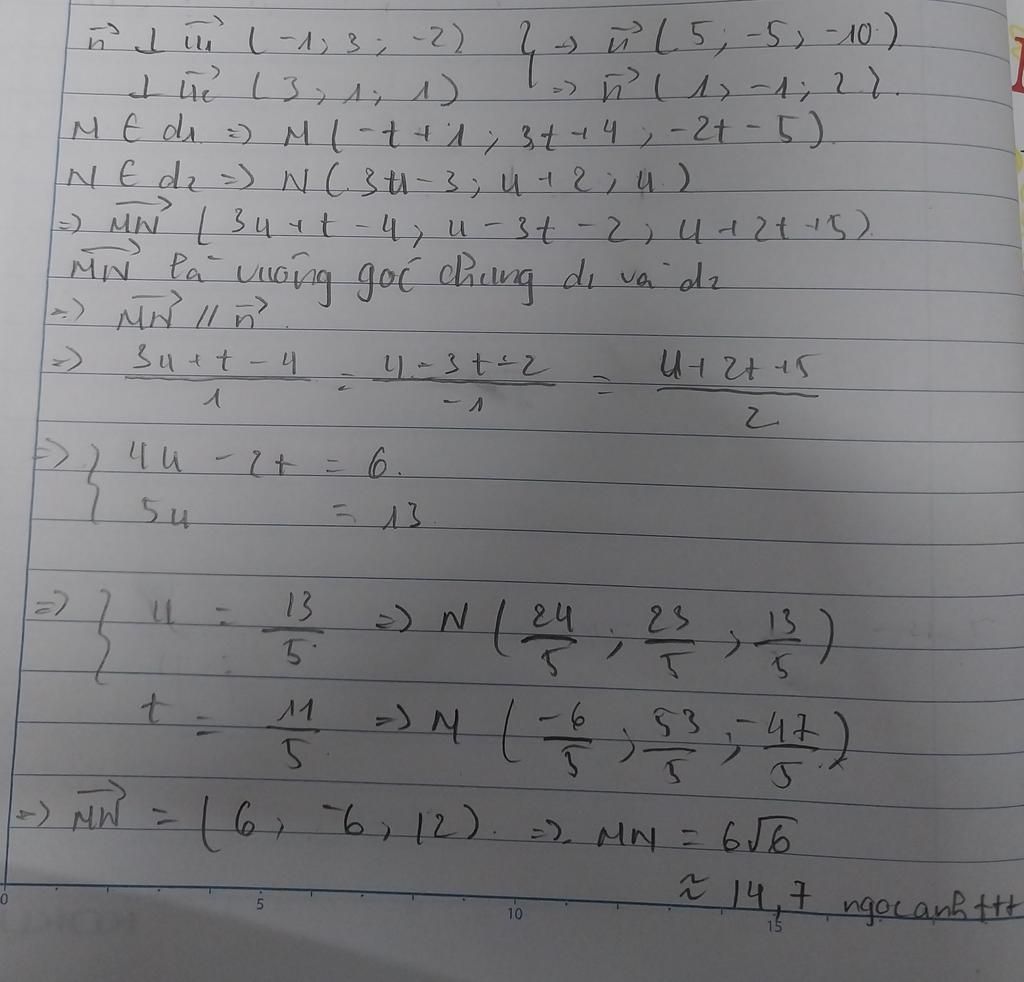 n⃗ ⊥ u₁⃗ (-1; 3; -2) } => n⃗ (5; -5; -10)
⊥ u₂⃗ (3; 1; 1) => n⃗ (1; -1; 2).
M ∈ d₁ => M (-t+1; 3t+4; -2t-5)
N ∈ d₂ => N (3u-3; u+2; u)
=> MN⃗ (3u+t-4; u-3t-2; u+2t+5)
MN⃗ là vuông góc chung d₁ và d₂
=> MN⃗ // n⃗.
=> (3u+t-4)/1 = (u-3t-2)/-1 = (u+2t+5)/2
=> { 4u - 2t = 6.
5u = 13
=> { u = 13/5 => N (24/5; 23/5; 13/5)
t = 11/5 => M (-6/5; 53/5; -47/5)
=> MN⃗ = (6; -6; 12). => MN = 6√6
≈ 14,7 ngocanhttt
0 5 10 15